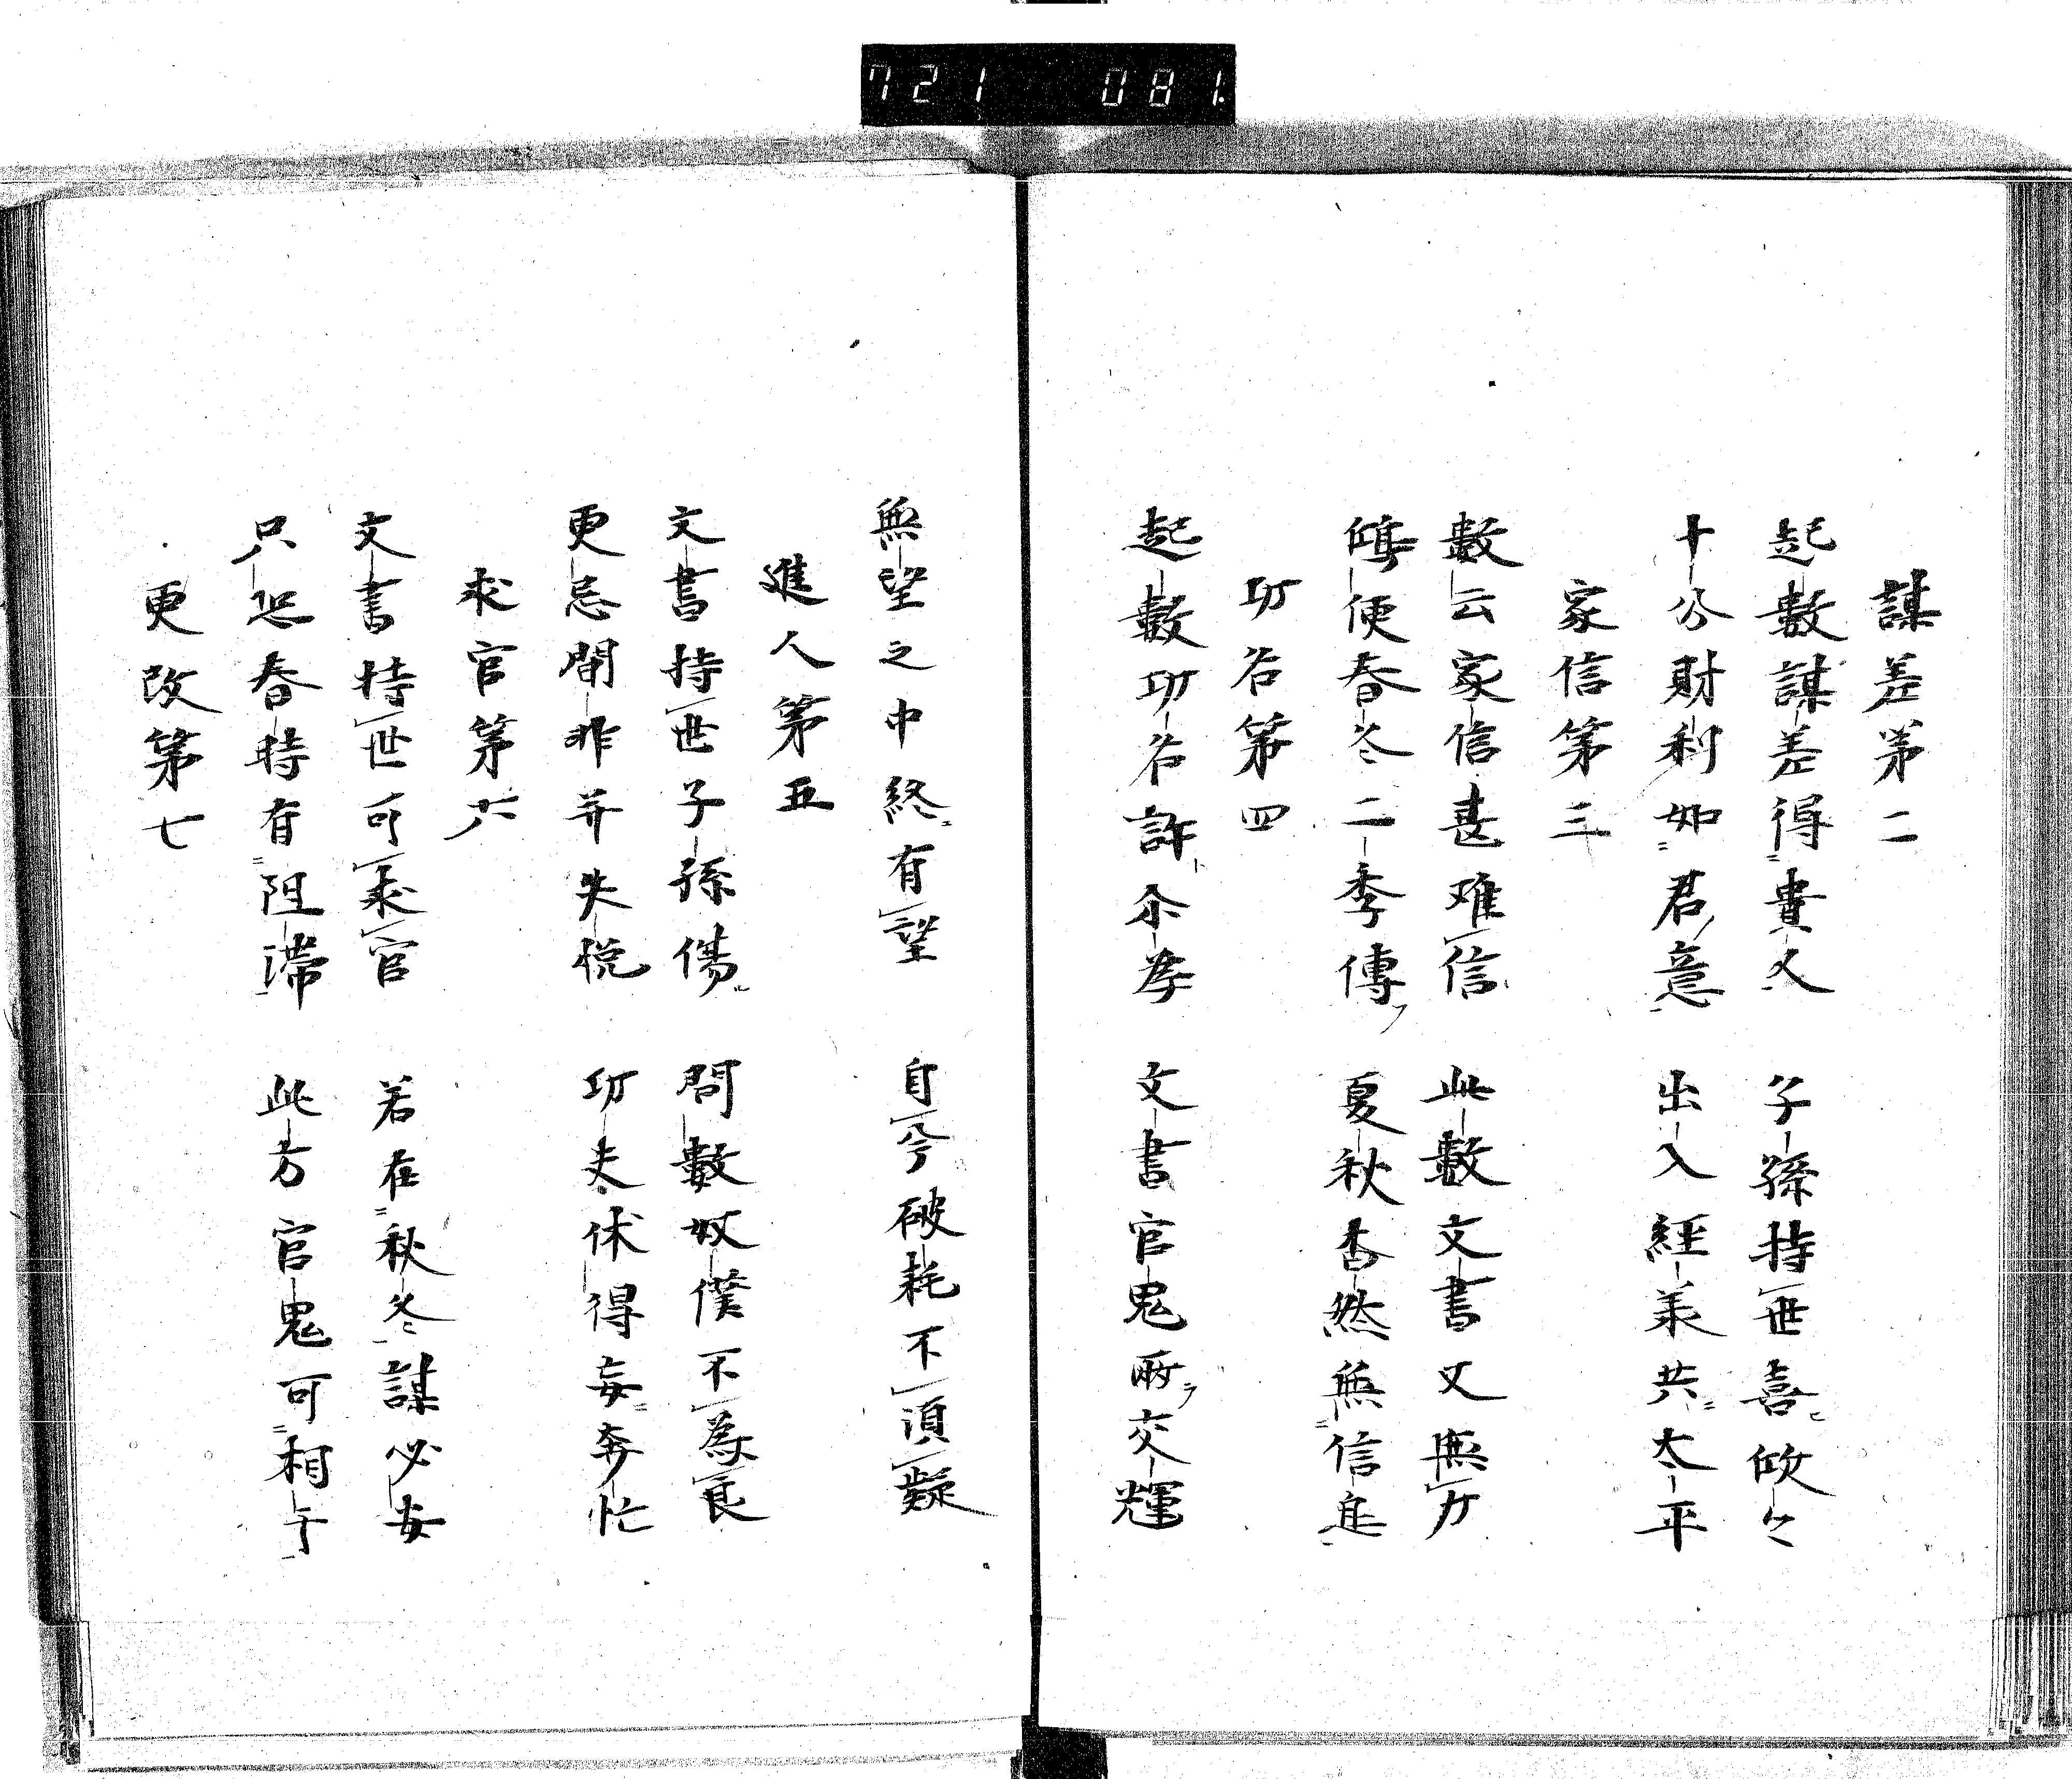 721 081.
謀差第二
起數謀差得貴人 子孫持世喜欣々
十分財利如君意 出入經求共太平
家信第三
數云家信甚难信 此數文書又無力
便春冬二季傳 夏秋杳然無信息
功名第四
起數功名許 文書官鬼兩交輝
無望之中終有望 自 破耗不須疑
進人第五
文書持世子孫傷 問數奴僕不為良
更忌 失 功夫休得妄奔忙
求官第六
文書持世可求官 若在秋冬謀必安
只恐春時有阻滞 此方官鬼可相干
更改第七